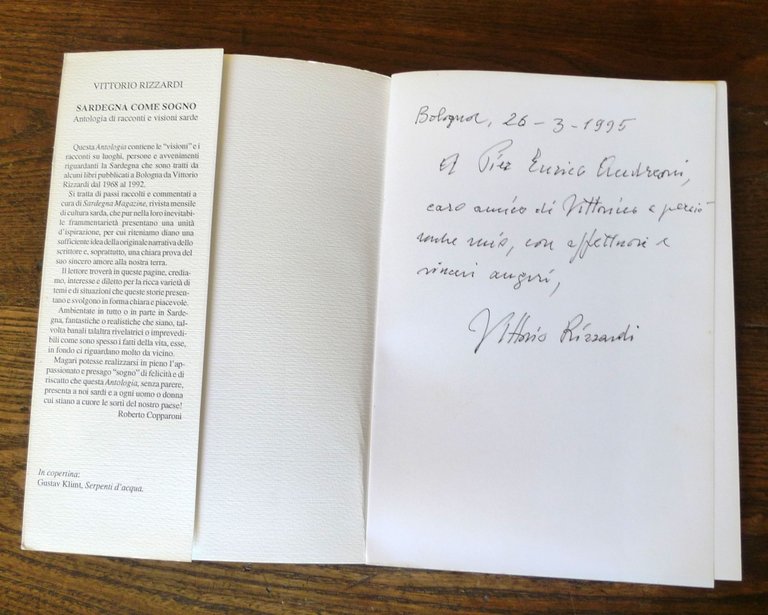 VITTORIO RIZZARDI
SARDEGNA COME SOGNO
Antologia di racconti e visioni sarde
Questa Antologia contiene le "visioni" e i
racconti su luoghi, persone e avvenimenti
riguardanti la Sardegna che sono tratti da
alcuni libri pubblicati a Bologna da Vittorio
Rizzardi dal 1968 al 1992.
Si tratta di passi raccolti e commentati a
cura di Sardegna Magazine, rivista mensile
di cultura sarda, che pur nella loro inevitabi-
le frammentarietà presentano una unità
d'ispirazione, per cui riteniamo diano una
sufficiente idea della originale narrativa dello
scrittore e, soprattutto, una chiara prova del
suo sincero amore alla nostra terra.
Il lettore troverà in queste pagine, credia-
mo, interesse e diletto per la ricca varietà di
temi e di situazioni che queste storie presen-
tano e svolgono in forma chiara e piacevole.
Ambientate in tutto o in parte in Sarde-
gna, fantastiche o realistiche che siano, tal-
volta banali talaltra rivelatrici o imprevedi-
bili come sono spesso i fatti della vita, esse,
in fondo ci riguardano molto da vicino.
Magari potesse realizzarsi in pieno l'ap-
passionato e presago "sogno" di felicità e di
riscatto che questa Antologia, senza parere,
presenta a noi sardi e a ogni uomo o donna
cui stiano a cuore le sorti del nostro paese!
Roberto Copparoni
In copertina:
Gustav Klimt, Serpenti d'acqua.
Bologna, 26-3-1995
A Pier Enrico Andreoni,
caro amico di Vittorino e perciò
anche mio, con affettuosi e
sinceri auguri,
Vittorio Rizzardi